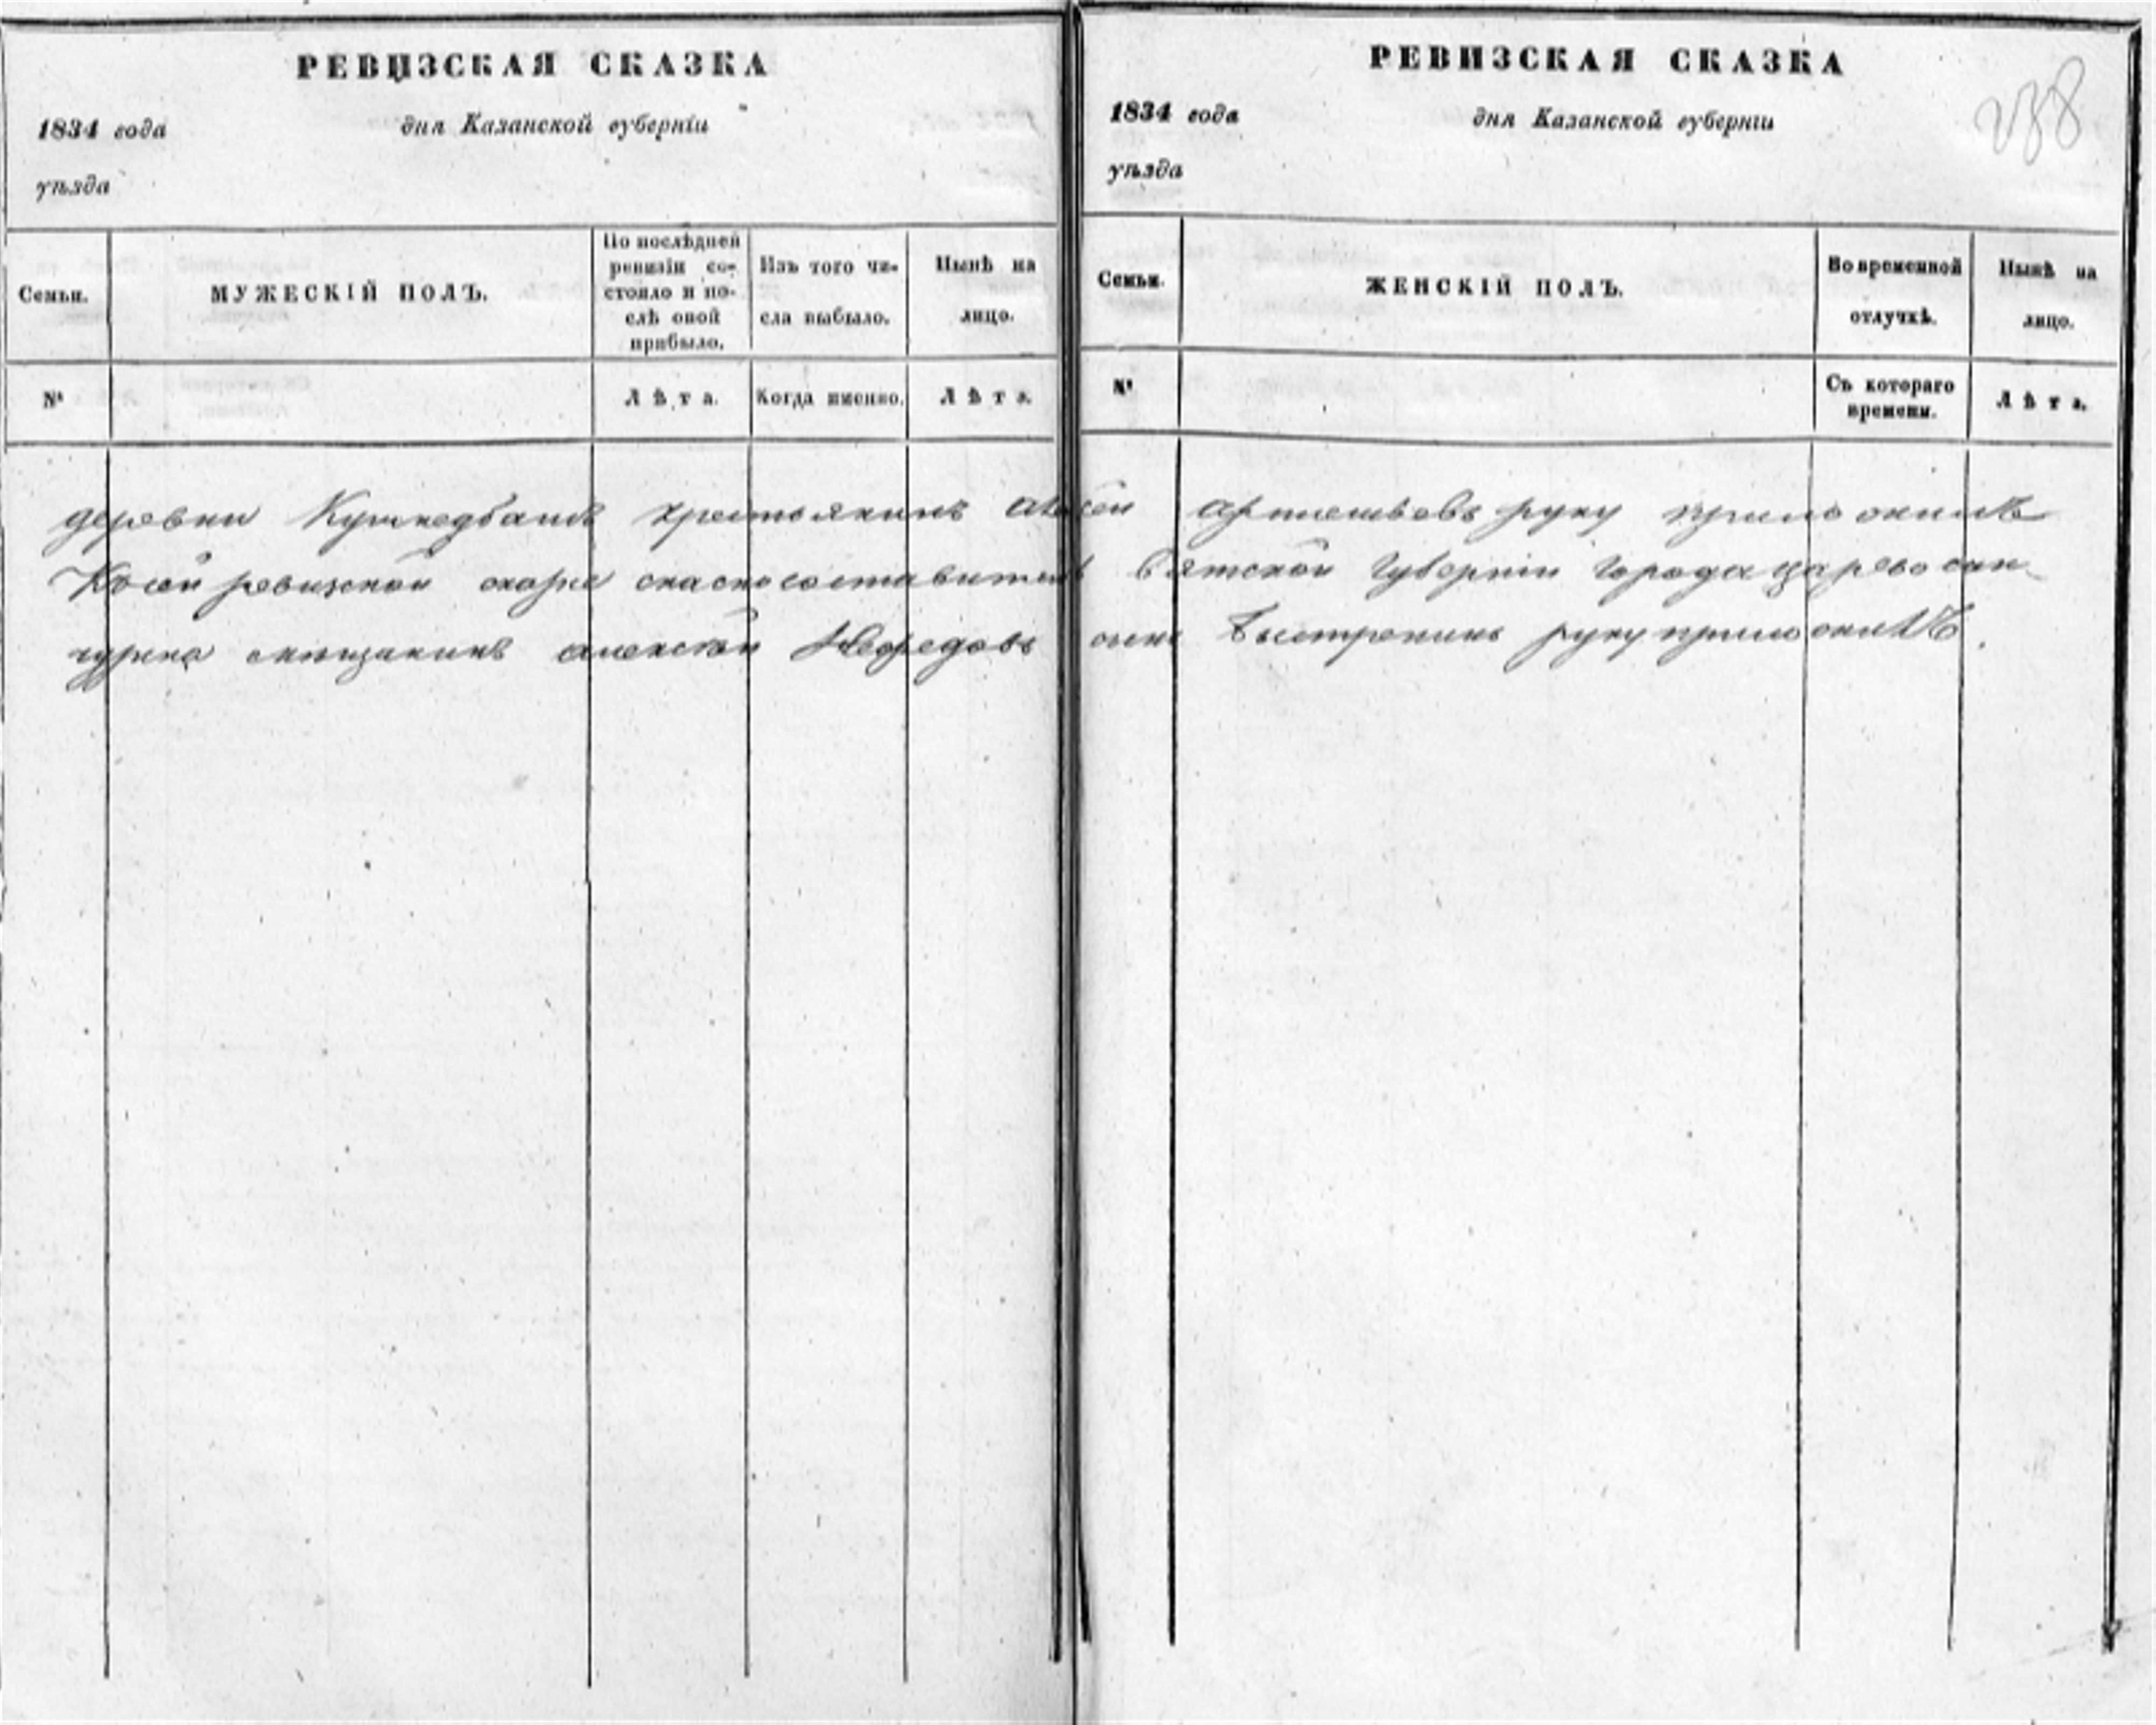 РЕВИЗСКАЯ СКАЗКА
1834 года дня Казанской губерніи
уѣзда
Семьи.
МУЖЕСКІЙ ПОЛЪ.
По послѣдней
ревизіи со-
стояло и по-
слѣ оной
прибыло.
Изъ того чи-
сла выбыло.
Нынѣ на
лицо.
№
Лѣта.
Когда именно.
Лѣта.
РЕВИЗСКАЯ СКАЗКА
238
1834 года дня Казанской губерніи
уѣзда
Семьи.
ЖЕНСКІЙ ПОЛЪ.
Во временной
отлучкѣ.
Нынѣ на
лицо.
№
Съ котораго
времени.
Лѣта.
деревни крестьянинъ руку приложилъ
Ксей ревизской Вятской губерніи города царево сан-
чурска мещанинъ алексей сынъ Быстренинъ руку приложилЪ.